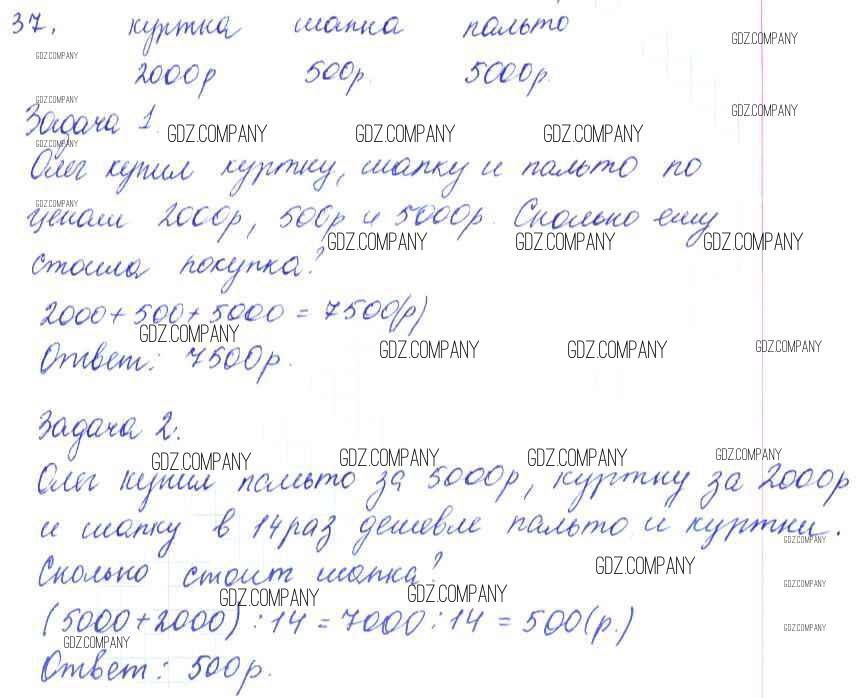 37. куртка шапка пальто
2000р 500р. 5000р.
Задача 1.
Олег купил куртку, шапку и пальто по
ценам 2000р, 500р и 5000р. Сколько ему
стоила покупка?
2000+500+5000=7500(р)
Ответ: 7500р.
Задача 2.
Олег купил пальто за 5000р, куртку за 2000р
и шапку в 14 раз дешевле пальто и куртки.
Сколько стоит шапка?
(5000+2000):14=7000:14=500(р.)
Ответ: 500р.
GDZ.COMPANY
GDZ.COMPANY
GDZ.COMPANY
GDZ.COMPANY
GDZ.COMPANY
GDZ.COMPANY
GDZ.COMPANY GDZ.COMPANY GDZ.COMPANY
GDZ.COMPANY GDZ.COMPANY GDZ.COMPANY
GDZ.COMPANY
GDZ.COMPANY GDZ.COMPANY GDZ.COMPANY
GDZ.COMPANY GDZ.COMPANY GDZ.COMPANY GDZ.COMPANY
GDZ.COMPANY
GDZ.COMPANY
GDZ.COMPANY
GDZ.COMPANY GDZ.COMPANY
GDZ.COMPANY
GDZ.COMPANY